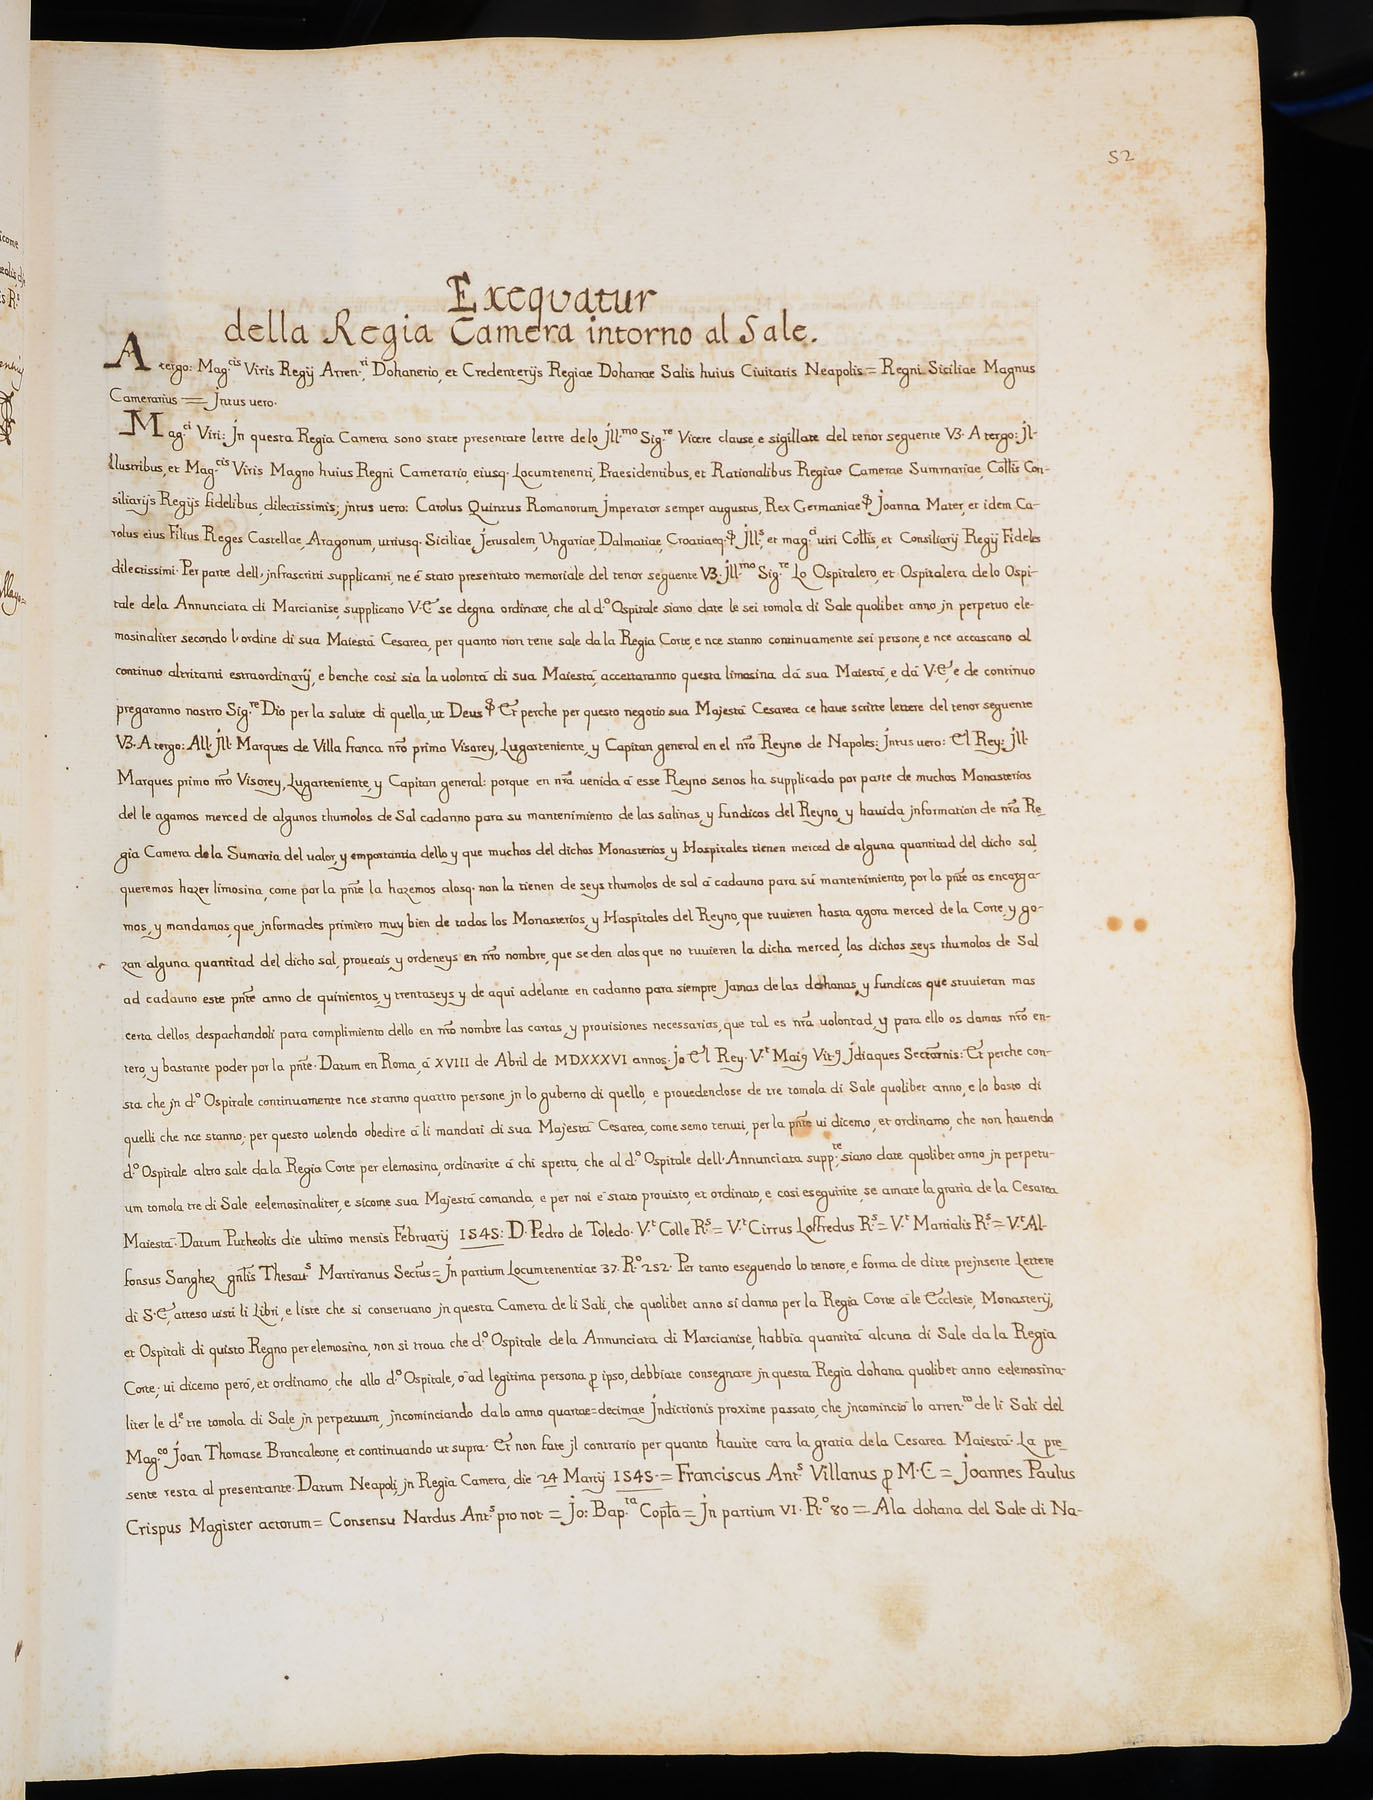 52
Exequatur
della Regia Camera intorno al Sale.
A tergo: Mag.cis Viris Regÿ Arren.ri Dohanerio, et Credenterÿs Regiae Dohanae Salis huius Ciuitatis Neapolis = Regni Siciliae Magnus
Camerarius = Jntus uero.
Mag.ci Viri: Jn questa Regia Camera sono state presentate lettre de lo Jll.mo Sig.re Vicere clause, e sigillate del tenor seguente VZ. A tergo: Jl-
llustribus, et Mag.cis Viris Magno huius Regni Camerario, eiusq. Locumtenenti, Praesidentibus, et Rationalibus Regiae Camerae Summariae, Collis Con-
siliarÿs Regÿs fidelibus, dilectissimis; jntus uero: Carolus Quintus Romanorum Jmperator semper augustus, Rex Germaniae Joanna Mater, et idem Ca-
rolus eius Filius Reges Castellae, Aragonum, utriusq. Siciliae, Jerusalem, Ungariae, Dalmatiae, Croatiaeq. Jll.s, et mag.ci uiri Collis, et Consiliarÿ Regÿ Fideles
dilectissimi. Per parte dell' jnfrascritti supplicanti, ne é stato presentato memoriale del tenor seguente VZ. Jll.mo Sig.re Lo Ospitalero, et Ospitalera de lo Ospi-
tale dela Annunciata di Marcianise, supplicano V.E se degna ordinare, che al d.o Ospitale siano date le sei tomola di Sale quolibet anno jn perpetuo ele-
mosinaliter secondo l'ordine di sua Maiestá Cesarea, per quanto non tene sale da la Regia Corte, e nce stanno continuamente sei persone, e nce accascano al
continuo altritanti estraordinarÿ, e benche cosi sia la uolontá di sua Maiestá, accettaranno questa limosina dá sua Maiestá, e dá V.E, e de continuo
pregaranno nostro Sig.re Dio per la salute di quella, ut Deus Et perche per questo negotio sua Majestá Cesarea ce haue scritte lettere del tenor seguente
VZ. A tergo: All. Jll. Marques de Villa franca nro primo Visorey, Lugarteniente, y Capitan general en el nro Reyno de Napoles: jntus uero: El Rey: Jll.
Marques primo nro Visorey, Lugarteniente, y Capitan general: porque en nra uenida á esse Reyno senos ha supplicado por parte de muchos Monasterios
del le agamos merced de algunos thumolos de Sal cadanno para su mantenimiento de las salinas, y fundicos del Reyno, y hauida jnformation de nra Re-
gia Camera dela Sumaria del ualor, y emportantia dello, y que muchos del dichos Monasterios, y Hospitales tienen merced de alguna quantitad del dicho sal,
queremos hazer limosina, come por la pnte la hazemos alosq. non la tienen de seys thumolos de sal á cadauno para su mantenimiento, por la pnte os encarga-
mos, y mandamos, que jnformades primiero muy bien de todos los Monasterios, y Hospitales del Reyno, que tuuieren hasta agora merced de la Corte, y go-
zan alguna quantitad del dicho sal, proueais, y ordeneys en nro nombre, que se den alos que no tuuieren la dicha merced, los dichos seys thumolos de Sal
ad cadauno este pnte anno de quinientos, y trentaseys y de aqui adelante en cadanno para siempre Jamas de las dohanas, y fundicos que stuuieran mas
certa dellos, despachandoli para complimiento dello en nro nombre las cartas, y prouisiones necessarias, que tal es nra uolontad, y para ello os damos nro en-
tero, y bastante poder por la pnte. Datum en Roma, á XVIII de Abril de MDXXXVI annos. Jo El Rey. V.t Mai9 Vit.9 Jdiaques Secretarnis: Et perche con-
sta che jn d.o Ospitale continuamente nce stanno quattro persone jn lo guberno di quello, e prouedendose de tre tomola di Sale quolibet anno, e lo basto di
quelli che nce stanno; per questo uolendo obedire á li mandati di sua Majestá Cesarea, come semo tenuti, per la pnte ui dicemo, et ordinamo, che non hauendo
d.o Ospitale altro sale da la Regia Corte per elemosina, ordinarite á chi spetta, che al d.o Ospitale dell'Annunciata supp.te siano date quolibet anno jn perpetu-
um tomola tre di Sale eelemosinaliter, e sicome sua Majestá comanda, e per noi é stato prouisto, et ordinato, e cosi eseguirite, se amate la gratia de la Cesarea
Maiestá. Datum Putheolis die ultimo mensis Februarÿ 1545: D. Pedro de Toledo. V.t Colle R.s = V.t Cirrus Loffredus R.s = V.t Martialis R.s = V.t Al-
fonsus Sanghez gnlis Thesau.s Martiranus Sectus = Jn partium Locumtenentiae 37. R.o 252. Per tanto eseguendo lo tenore, e forma de ditte prejnserte Lettere
di S.E, atteso uisti li Libri, e liste che si conseruano jn questa Camera de li Sali, che quolibet anno si danno per la Regia Corte á le Ecclesie, Monasterÿ,
et Ospitali di quisto Regno per elemosina, non si troua che d.o Ospitale de la Annunciata di Marcianise, habbia quantitá alcuna di Sale da la Regia
Corte; ui dicemo peró, et ordinamo, che allo d.o Ospitale, ó ad legitima persona p ipso, debbiate consegnare jn questa Regia dohana quolibet anno eelemosina-
liter le d.e tre tomola di Sale jn perpetuum, jncominciando da lo anno quartae=decimae Jndictionis proxime passato, che jncominció lo arren.to de li Sali del
Mag.co Joan Thomase Brancaleone, et continuando ut supra. Et non fate jl contrario per quanto hauite cara la gratia dela Cesarea Maiestá. La pre-
sente resta al presentante. Datum Neapoli, jn Regia Camera, die 24 Martÿ 1545. = Franciscus Ant.s Villanus p M.C = Joannes Paulus
Crispus Magister actorum = Consensu Nardus Ant.s pro not. = Jo: Bap.ta Copta = Jn partium VI. R.o 80 = A la dohana del Sale di Na-